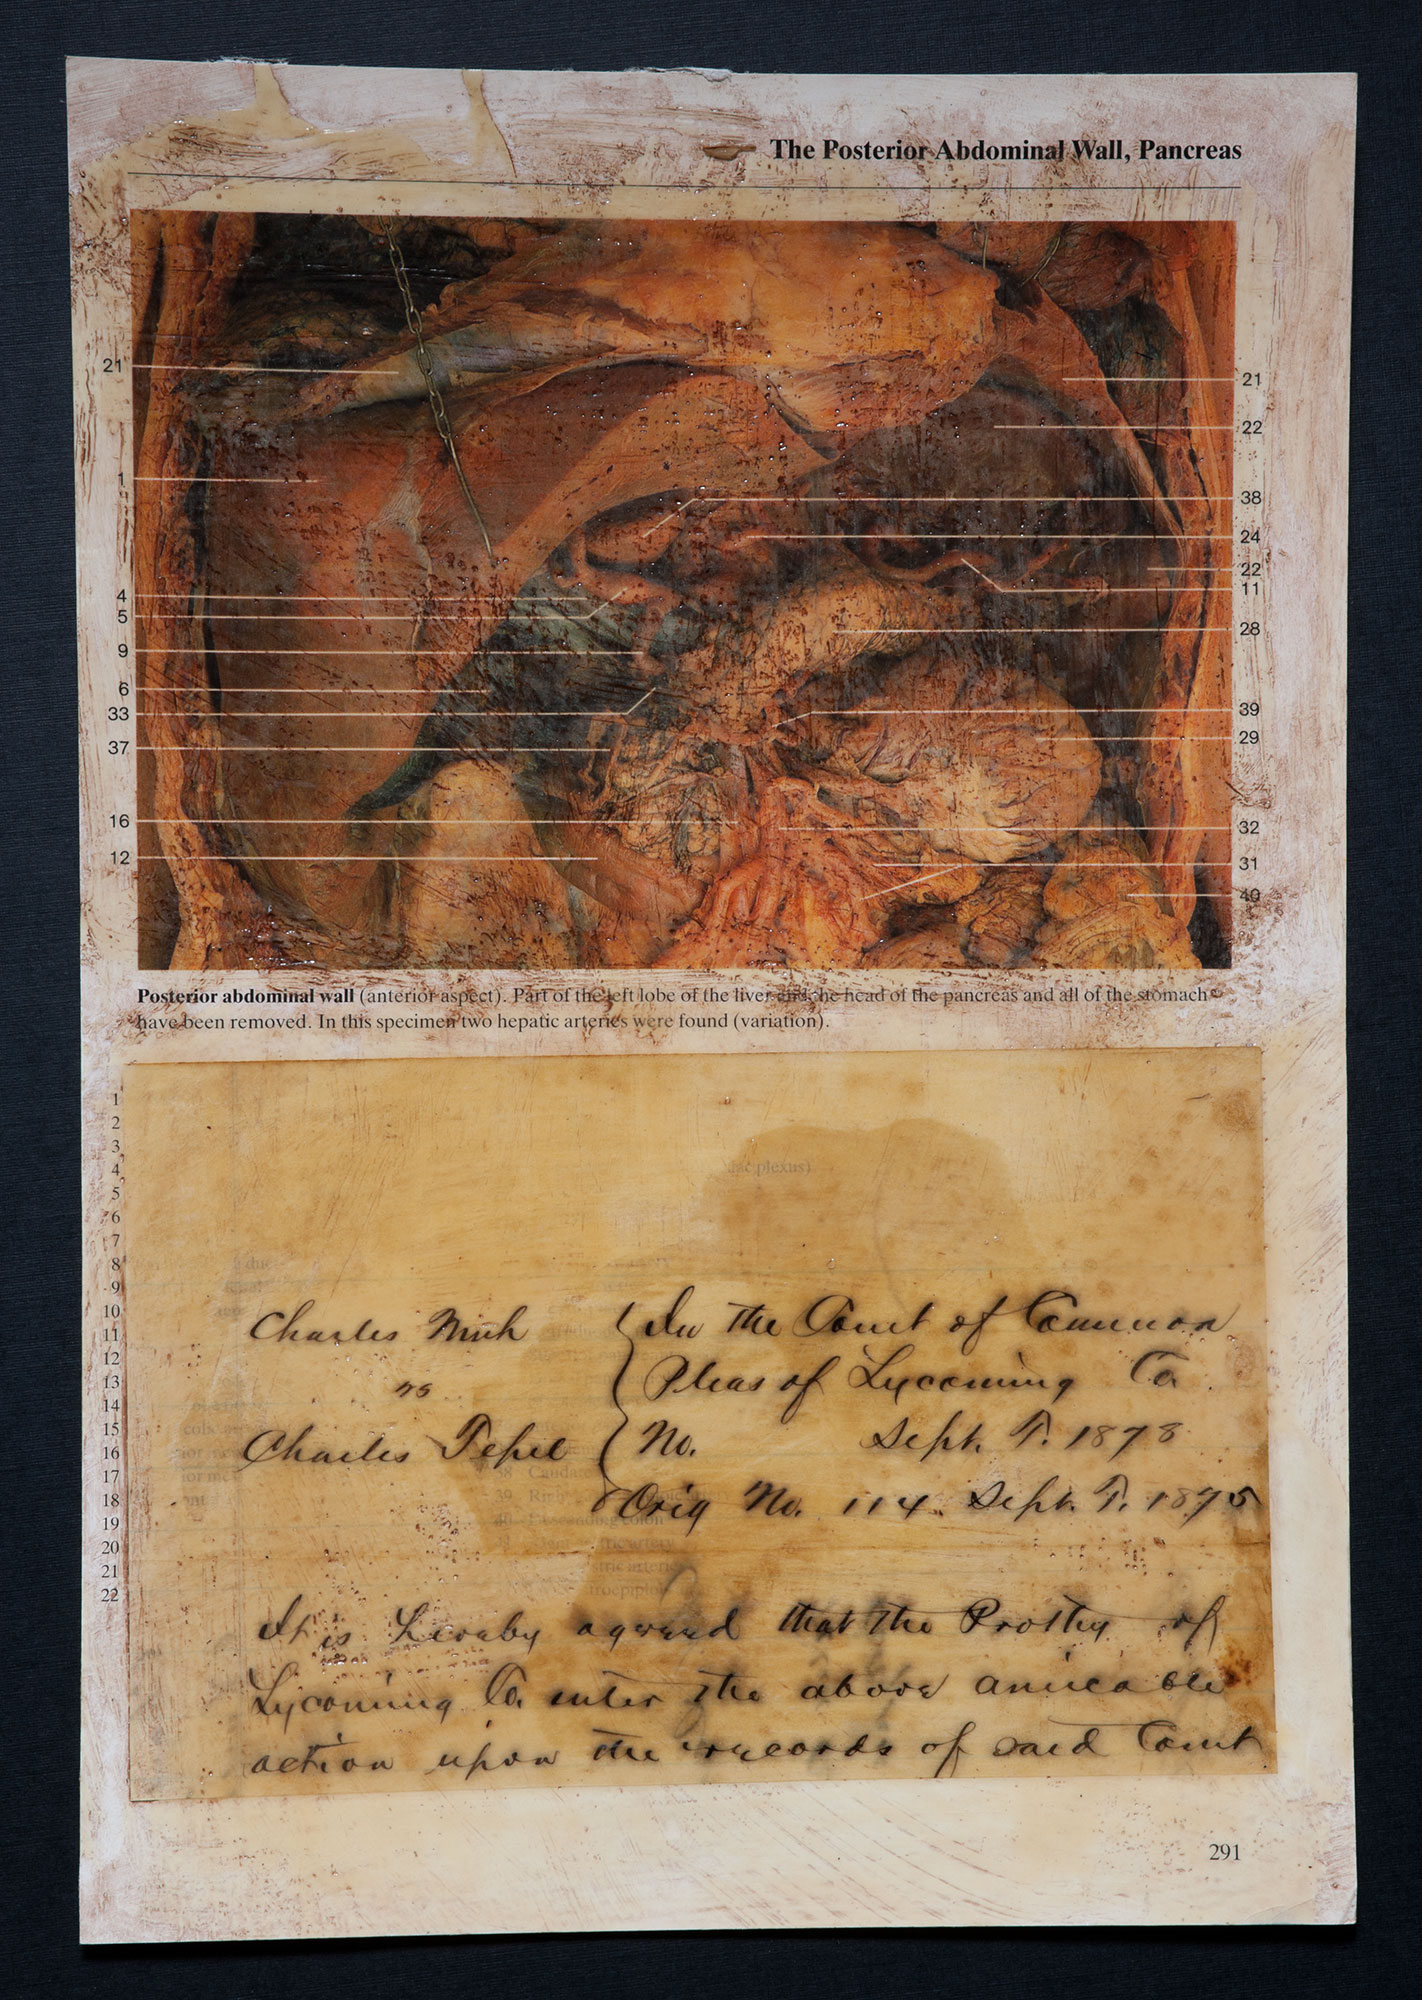 The Posterior Abdominal Wall, Pancreas
21
1
4
5
9
6
33
37
16
12
21
22
38
24
22
11
28
39
29
32
31
40
Posterior abdominal wall (anterior aspect). Part of the left lobe of the liver and the head of the pancreas and all of the stomach
have been removed. In this specimen two hepatic arteries were found (variation).
1
2
3
4
5
6
7
8
9
10
11
12
13
14
15
16
17
18
19
20
21
22
plexus)
Charles
vs
Charles
In the Court of Common
Pleas of Lycoming Co.
No. Sept. T. 1878
Orig No. 114 Sept. T. 1875
38 Caudate
39
40 Descending colon
It is hereby agreed that the Prothy of
Lycoming Co. enter the above amicable
action upon the records of said Court
291